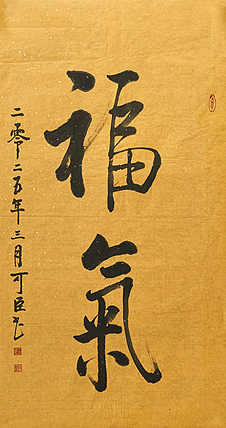 福氣
二零二五年三月可臣书